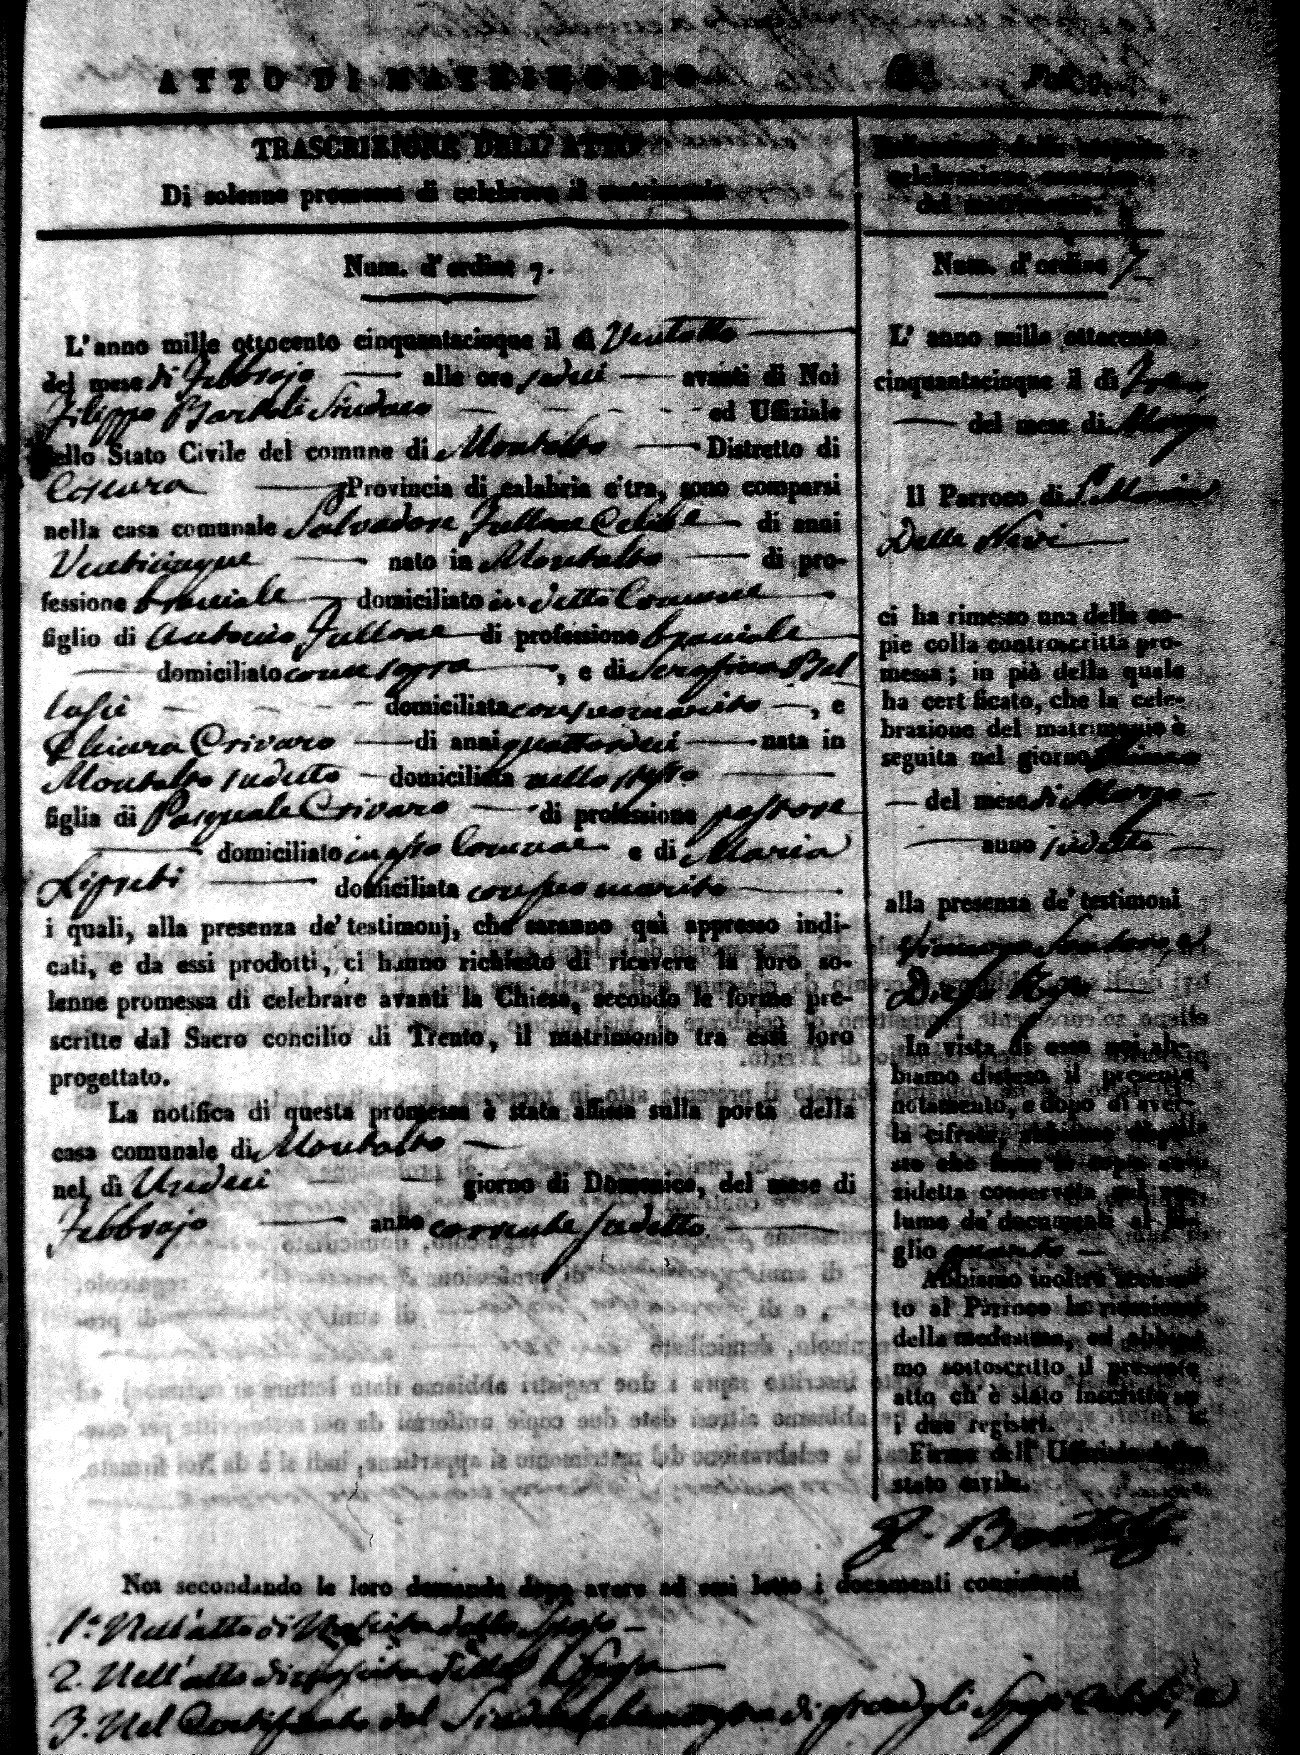 ATTO DI MATRIMONIO
TRASCRIZIONE DELL' ATTO
Di solenne promessa di celebrare il matrimonio
Num. d'ordine 7.
L'anno mille ottocento cinquantacinque il dì Ventotto
del mese di Febbrajo alle ore sedici avanti di Noi
Filippo Bartoli Sindaco ed Uffiziale
dello Stato Civile del comune di Montalto Distretto di
Cosenza Provincia di calabria citra, sono comparsi
nella casa comunale Salvadore Fullone Celibe di anni
Venticinque nato in Montalto di pro-
fessione bracciale domiciliato in detto Comune
figlio di Antonio Fullone di professione bracciale
domiciliato come sopra, e di Serafina Bel
lusci domiciliata con suo marito, e
Chiara Crivaro di anni quattordici nata in
Montalto sudetto domiciliata nello stesso
figlia di Pasquale Crivaro di professione pastore
domiciliato in esso Comune e di Maria
domiciliata con suo marito
i quali, alla presenza de' testimonj, che saranno quì appresso indi-
cati, e da essi prodotti, ci hanno richiesto di ricevere la loro so-
lenne promessa di celebrare avanti la Chiesa, secondo le forme pre-
scritte dal Sacro concilio di Trento, il matrimonio tra essi loro
progettato.
La notifica di questa promessa è stata affissa sulla porta della
casa comunale di Montalto
nel dì Undici giorno di Domenica, del mese di
Febbrajo anno corrente sudetto.
celebrazione canonica
del matrimonio.
Num. d'ordine 7
L' anno mille ottocento
cinquantacinque il dì Tre
del mese di Marzo
Il Parroco di S. Maria
Della Nevi
ci ha rimesso una delle co-
pie colla controscritta pro-
messa; in piò della quale
ha certificato, che la cele-
brazione del matrimonio è
seguita nel giorno
del mese di Marzo
anno sudetto
alla presenza de' testimoni
In vista di essa noi ab-
biamo disteso il presente
notamento, e dopo di aver-
la cifrata, abbiamo dispo-
sto che fosse la copia su-
zidetta conservata nel vo-
lume de' documenti al fo-
glio quarto
Abbiamo inoltre accusa-
to al Parroco la ricezione
della medesima, ed abbia-
mo sottoscritto il presente
atto ch' è stato inscritto su
i due registri.
Firma dell' Uffiziale dello
stato civile.
F. Bartoli
Noi secondando le loro domande dopo avere ad essi letto i documenti consistenti
1.° Nell'atto di Nascita dello Sposo
2. Nell'atto di nascita della Sposa
3. Nel Certificato del Sindaco